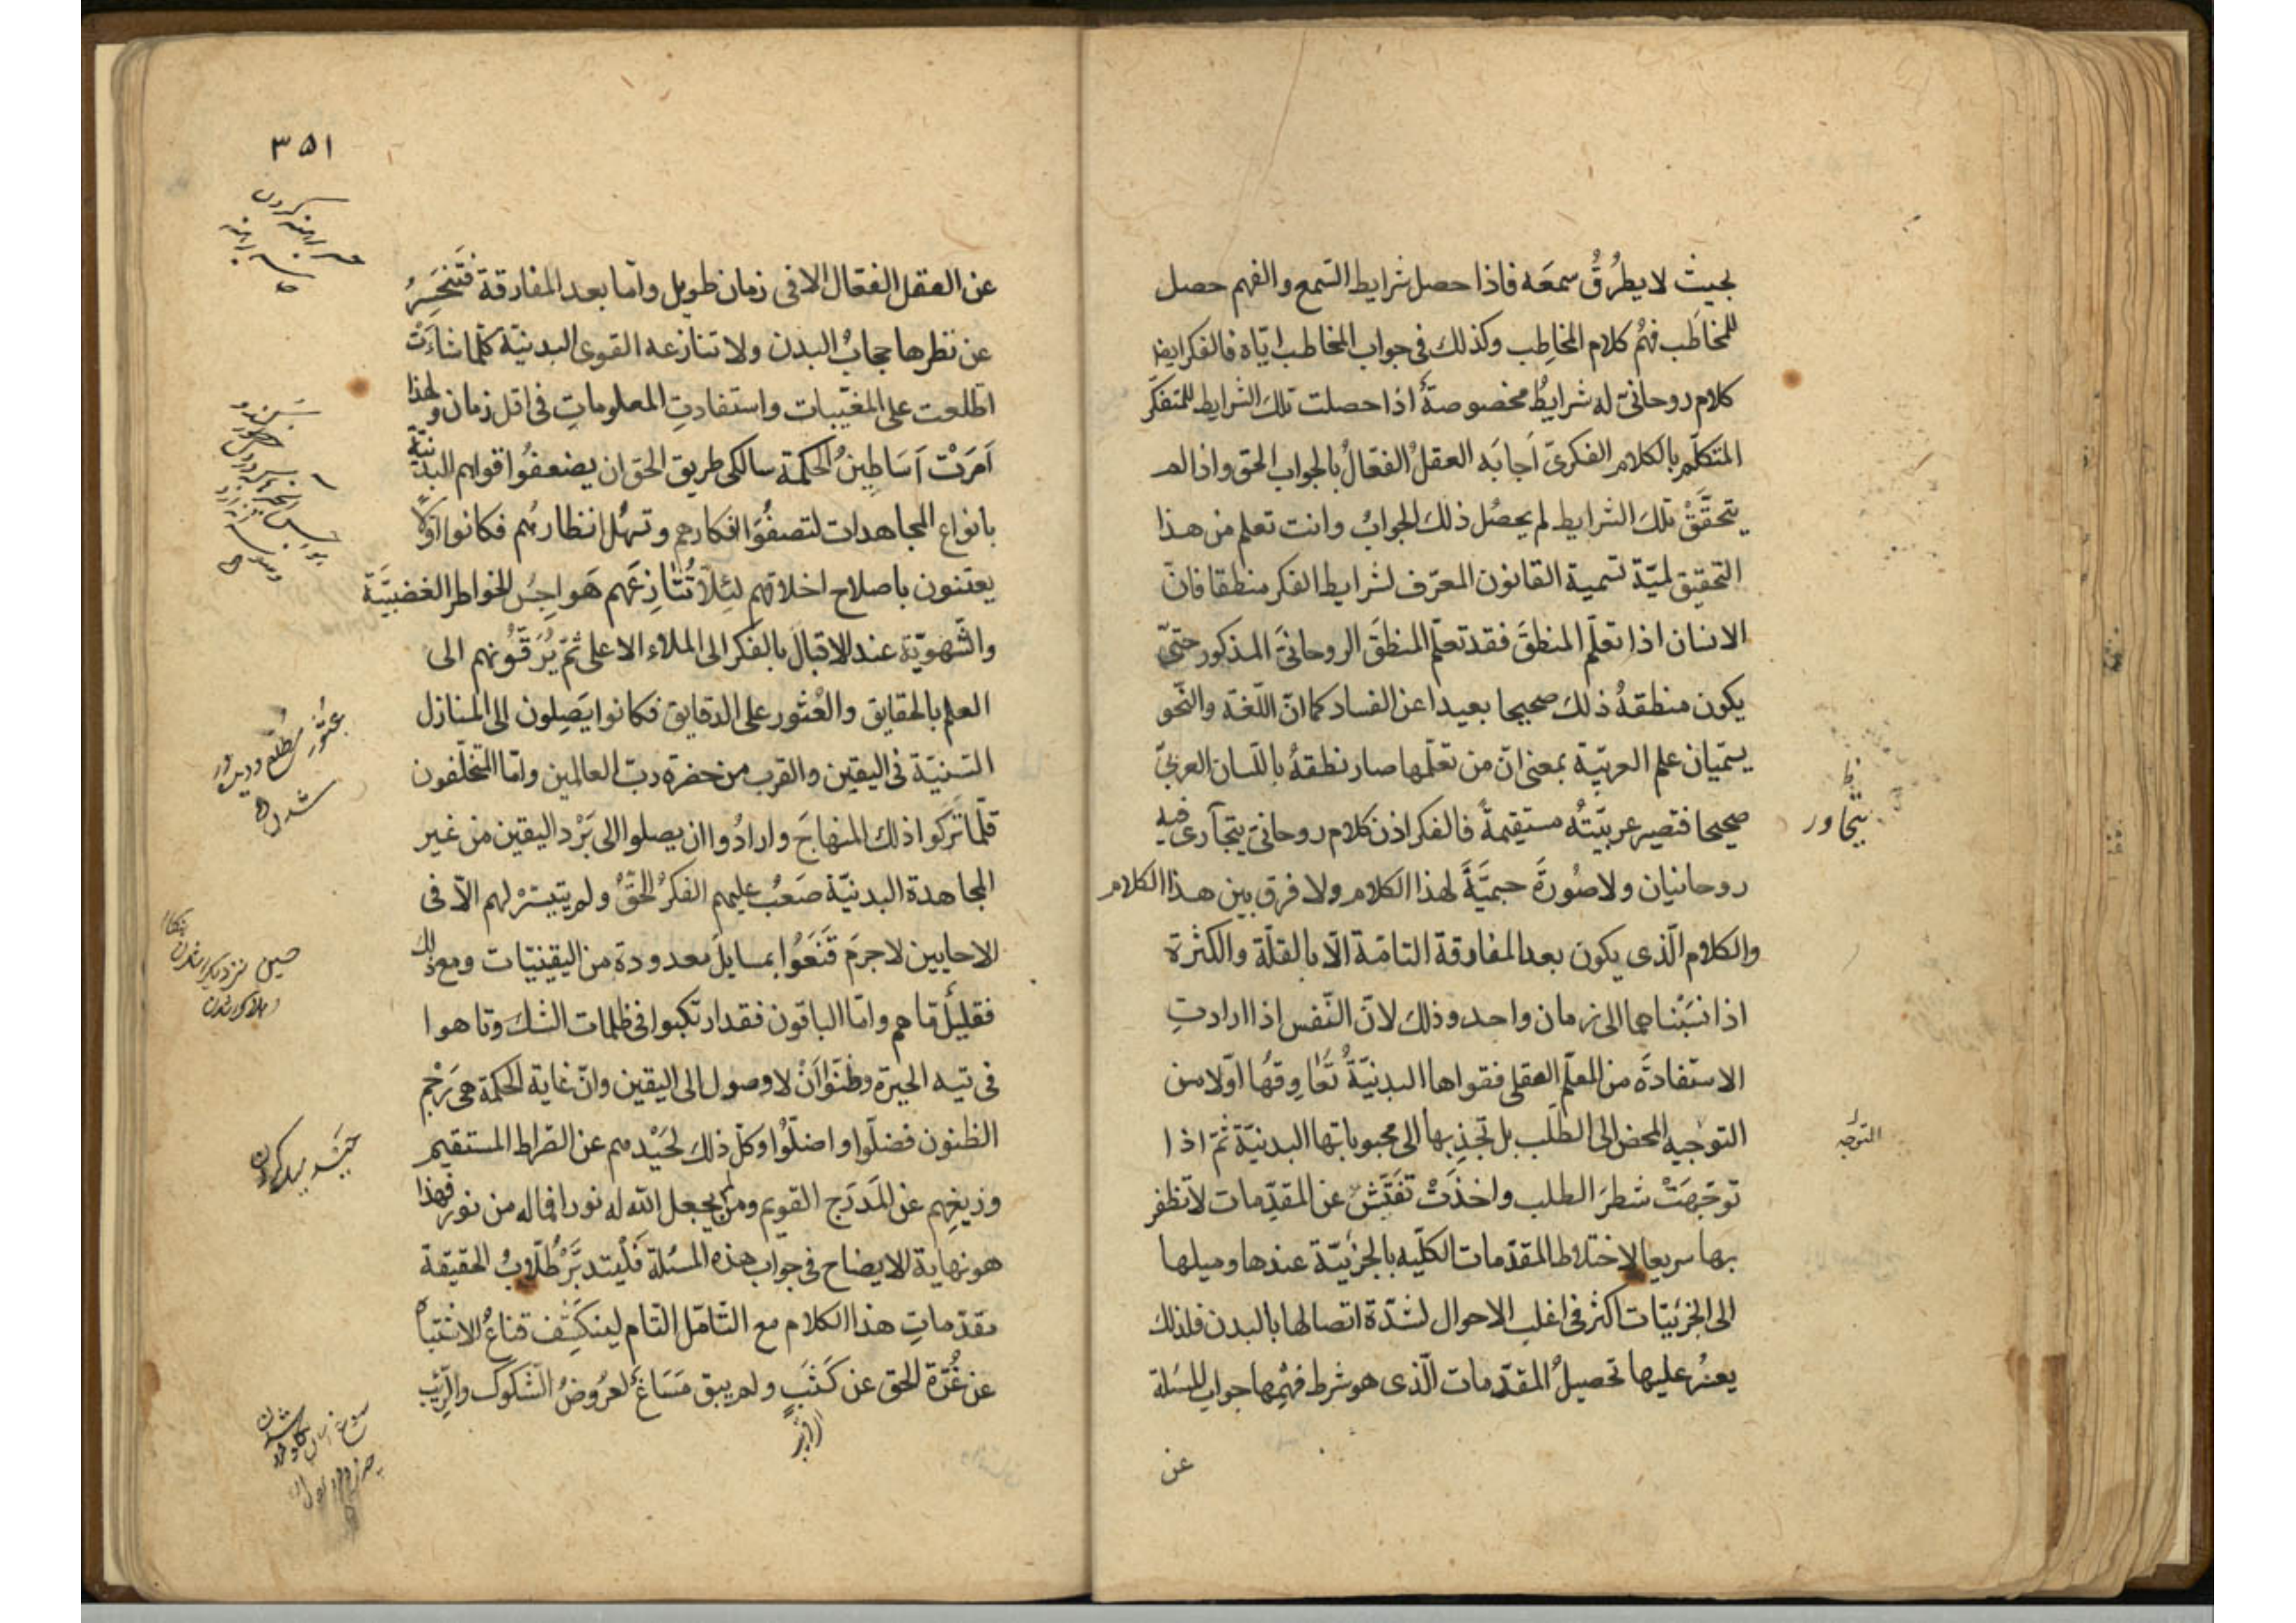 بحيث لا يطرُقُ سمعَه فاذا حصل شرايط السّمع والفهم حصل
للمخاطَب فهمُ كلام المخاطِب وكذلك فى جواب المخاطب ايّاه فالفكر ايضا
كلام روحانىّ له شرايطُ مخصوصةٌ اذا حصلت تلك الشرايط للمتفكّر
المتكلّم بالكلام الفكرىّ اَجابَه العقلُ الفعّالُ بالجواب الحق واذا لم
يتحقَّقْ تلك الشرايط لم يحصُل ذلك الجوابُ وانت تعلم من هذا
التحقيق لميّة تسمية القانون المعرّف لشرايط الفكر منطقا فانّ
الانسان اذا تعلّم المنطقَ فقد تعلّم المنطقَ الروحانىَّ المذكور حتىّ
يكون منطقهُ ذلك صحيحا بعيدا عن الفساد كما انّ اللّغة والنّحو
يسمّيان علم العربيّة بمعنى انّ من تعلّمها صار نطقهُ باللّسان العربىّ
صحيحا فتصير عربيّتُه مستقيمةً فالفكر اذن كلام روحانىّ يتجآرى فيه
يتجاور
روحانيان ولا صُورَةَ جسميَّةً لهذا الكلام ولا فرق بين هذا الكلام
والكلام الّذى يكون بعد المفارقة التامّة الّا بالقلّة والكثرة
اذا نسَبْناهما الى زمان واحد وذلك لانّ النّفس اذا ارادتِ
الاستفادةَ من المعلّم العقلى فقواها البدنيّةُ تُعاوِقُها اوّلا من
التوجيه المحض الى الطّلب بل تجذِبها الى محبوباتها البدنيّة ثمّ اذا
التوجّه
توجّهَتْ شطرَ الطلب واخذَتْ تفتّش عن المقدّمات لا تظفر
بها سريعا لاختلاط المقدّمات الكلّيه بالجزئيّة عندها وميلها
الى الجزئيّات اكثر فى اغلب الاحوال لشدّة اتصالها بالبدن فلذلك
يعسُر عليها تحصيلُ المقدّمات الّذى هو شرط فهمِها جواب المسئلة
عن
٣٥١
عن العقل الفعّال الا فى زمان طويل وامّا بعد المفارقة فتنحَسِرُ
عن نظرها حجابُ البدن ولا تنازعه القوى البدنيّة كلّما شاءَتْ
اطّلعت على المغيّبات واستفادتِ المعلوماتِ فى اقل زمان ولهذا
اَمَرَتْ اَسَاطِينُ الحكمة سالكى طريق الحق ان يضعفُوا قواهم البدنيّة
بانواع المجاهدات لتصفُوَا افكارهم وتسهُل انظارُهم فكانوا اوّلًا
يعتنون باصلاح اخلاقهم لئِلّا تُنازِعَهم هَواجِسُ الخواطر الغضبيَّة
والشّهويّة عند الاقبال بالفكر الى الملاء الاعلى ثمّ يُرَقّونهم الى
العلم بالحقايق والعُثور على الدقايق فكانوا يَصِلون الى المنازل
السّنيّة فى اليقين والقرب من حضرة ربّ العالمين وامّا المتخلّفون
قلّما تَركوا ذلك المنهاجَ وارادُوا ان يصلوا الى بَرْد اليقين من غير
المجاهدة البدنيّة صَعُب عليهم الفكرُ الحقُّ ولم يتيسّرْ لهم الّا فى
الاحايين لا جرمَ قَنَعُوا بمسايلَ معدودة من اليقينيّات ومع ذلك
فقليلٌ ما هم وامّا الباقون فقد ارتكبوا فى ظلمات الشك وتاهوا
فى تيه الحيرة وظنّوا اَنْ لا وصول الى اليقين وانّ غاية الحكمة هى رَجْم
الظنون فضلّوا واضلّوْا وكلّ ذلك لحَيْدهم عن الصّراط المستقيم
وزيغِهم عن المَدرَج القويم ومن لم يجعل الله له نورا فما له من نور فهذا
هو نهاية الايضاح فى جواب هذه المسئلة فَلْيتدبَّرْ طُلّابُ الحقيقة
مقدّماتِ هذا الكلام مع التّامّل التّام لينكَشِف قناعُ الاشتباه
عن غُرّة الحق عن كَثَبٍ ولم يبق مَسَاغٌ لعُروض الشّكوك والرّيب